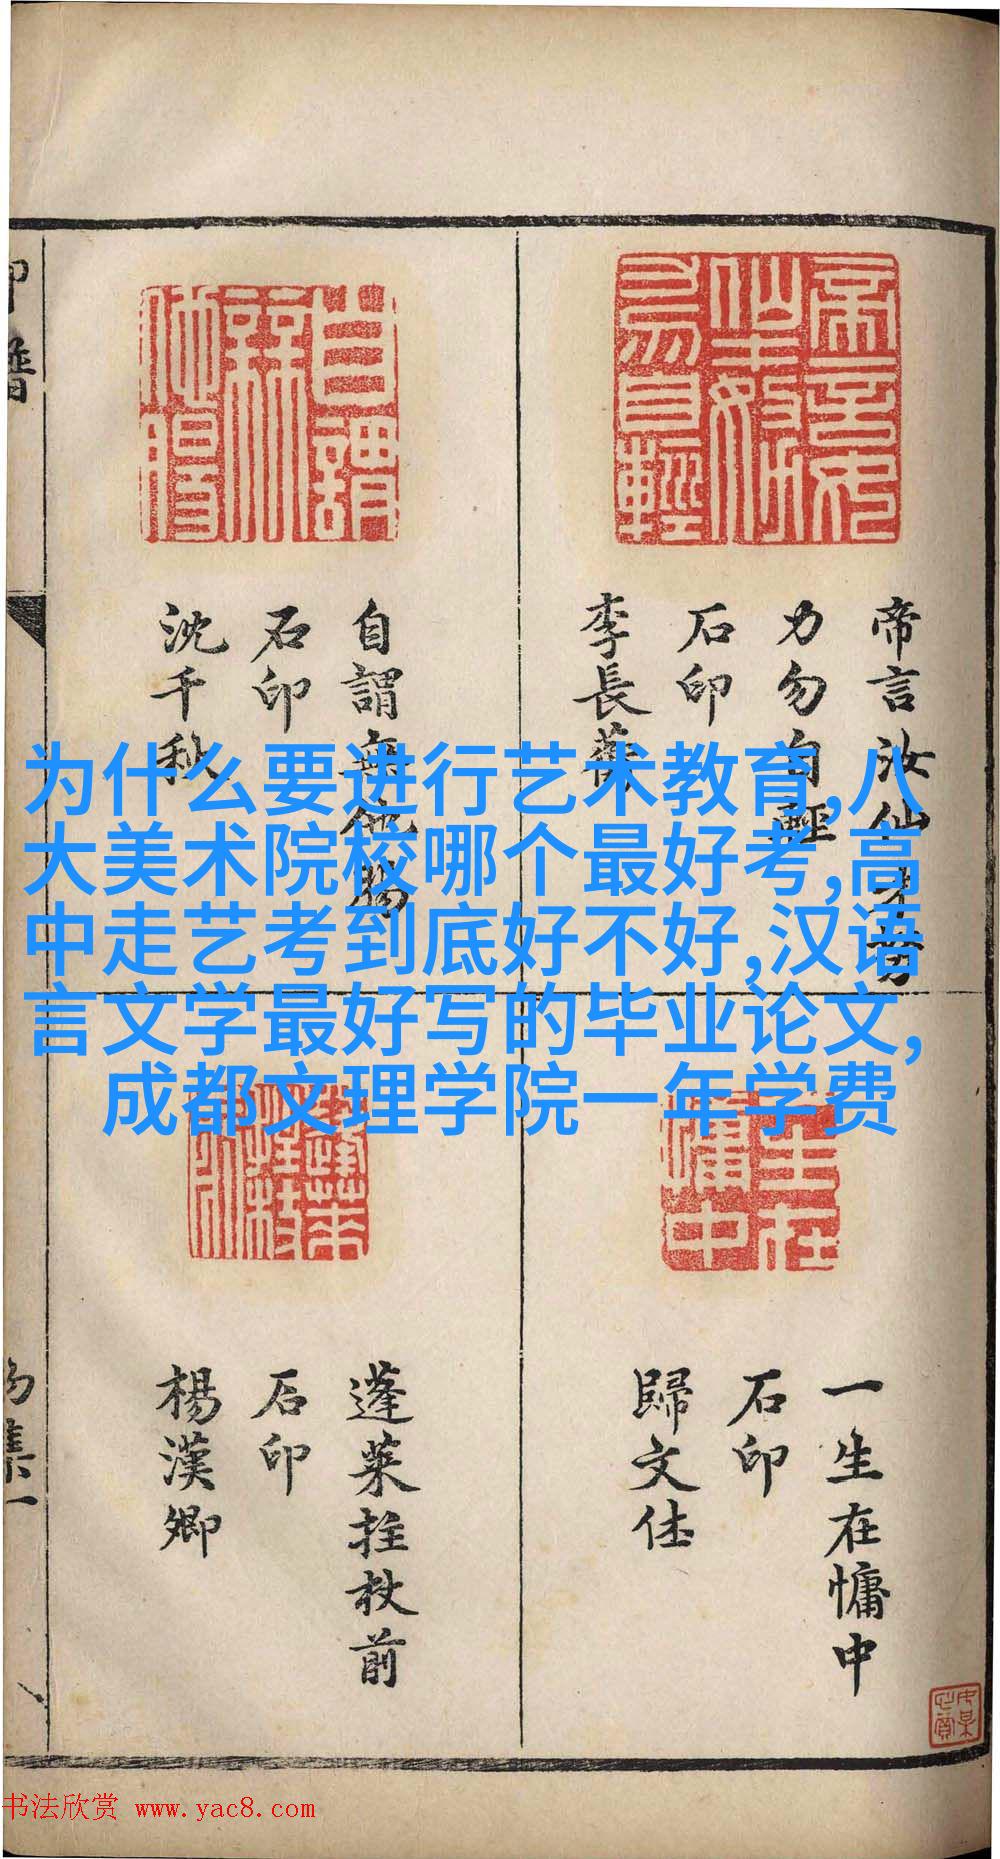 帝言汝仙才努
力勿自輕
石印
李長蘅
自謂無他腸
石印
沈千秋
为什么要进行艺术教育,八
大美术院校哪个最好考,高
中走艺考到底好不好,汉语
言文学最好写的毕业论文,
成都文理学院一年学费
一生在慵中
石印
歸文休
蓬萊拄杖前
石印
楊漢卿
印譜
书法欣赏 www.yac8.com